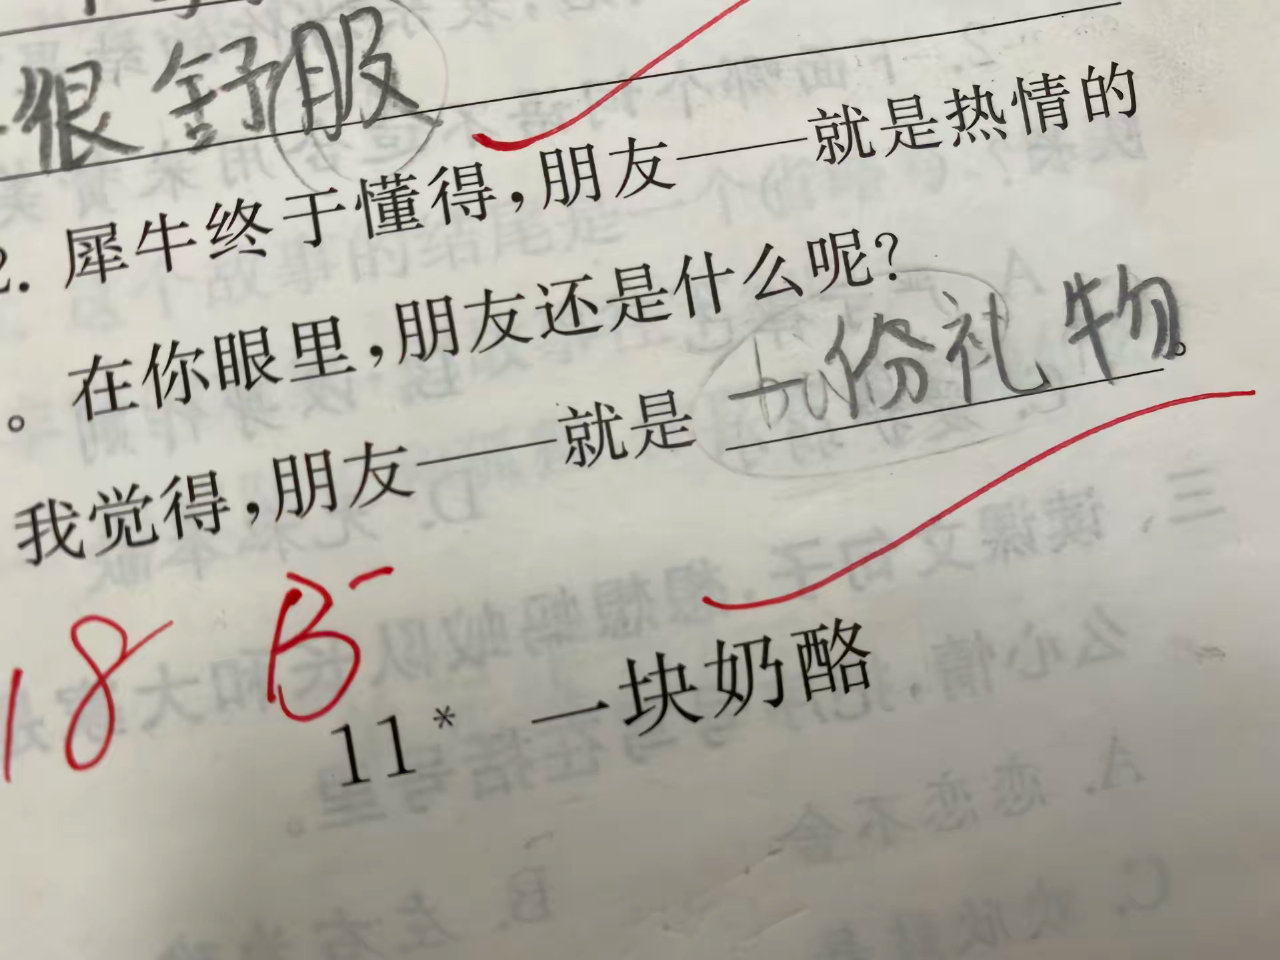 很舒服
2. 犀牛终于懂得,朋友——就是热情的
。在你眼里,朋友还是什么呢?
我觉得,朋友——就是 一份礼物。
18 B-
11* 一块奶酪